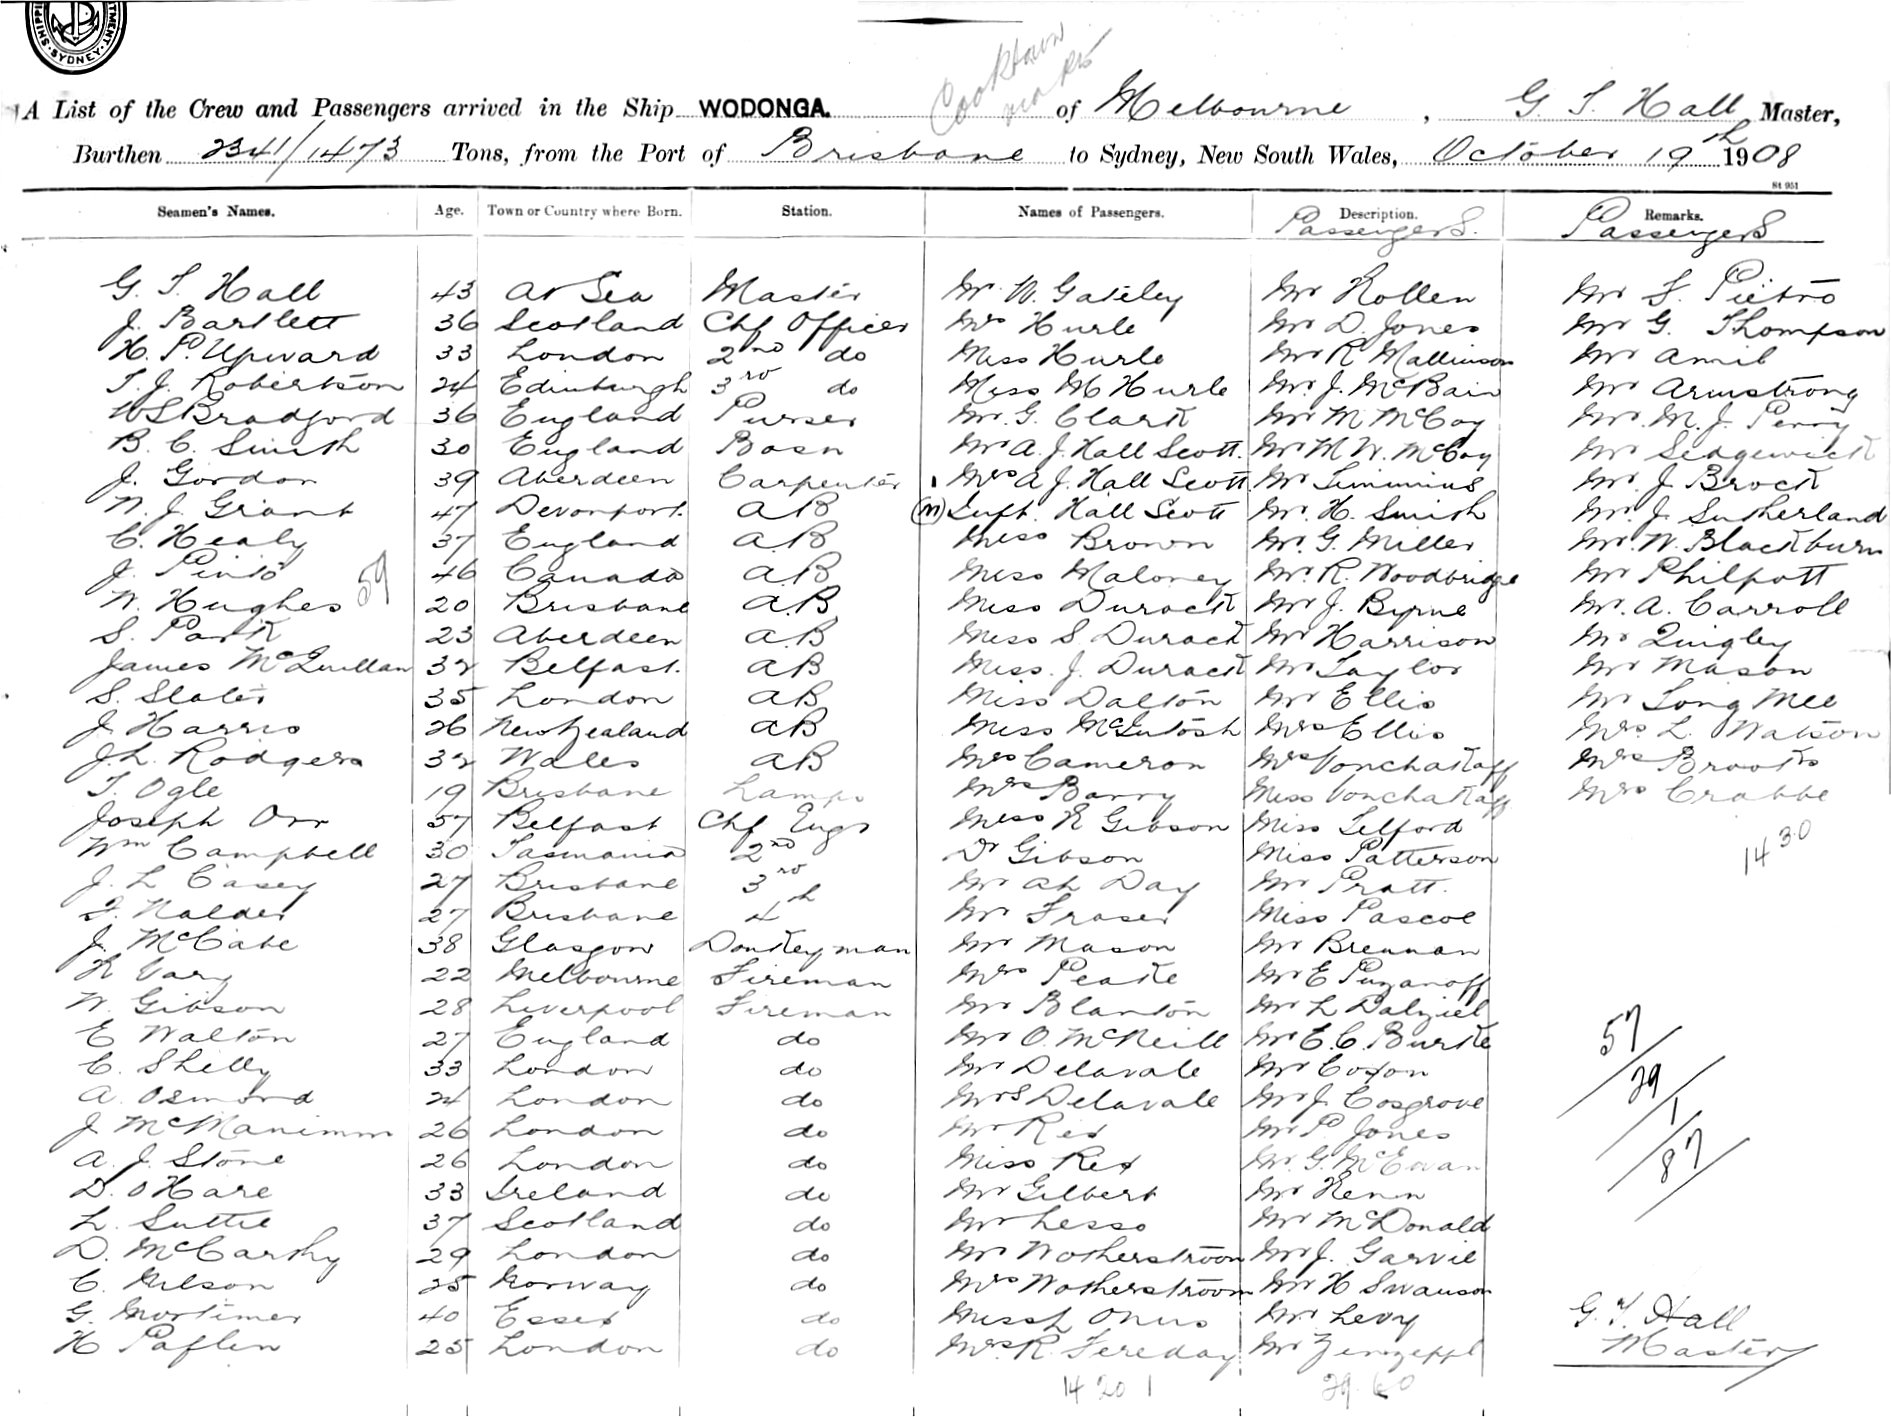 SHIPPI TMENT · SYDNEY ·
Cooktown
A List of the Crew and Passengers arrived in the Ship WODONGA. of Melbourne, G. T. Hall Master,
Burthen 2341/1473 Tons, from the Port of Brisbane to Sydney, New South Wales, October 19th 1908
St 951
Seamen's Names. Age. Town or Country where Born. Station. Names of Passengers. Description. Remarks.
Passengers. Passengers
G. T. Hall 43 At Sea Master Mr W. Gateley Mr Rollen Mr F. Pietro
J. Bartlett 36 Scotland Chf Officer Mrs Hurle Mr D. Jones Mr G. Thompson
H. P. Upward 33 London 2nd do Miss Hurle Mr R Mallinson Mr Amib
T. J. Robertson 24 Edinburgh 3rd do Miss M Hurle Mr. J. McBain Mr Armstrong
W S Bradford 36 England Purser Mr. G. Clark Mr M McCoy Mr. M. J. Perry
B. C. Smith 30 England Bosn Mr A. J. Hall Scott. Mr M W. McCoy Mr Sedgewick
J. Gordon 39 Aberdeen Carpenter Mrs A J. Hall Scott. Mr Simmins Mr. J. Brock
W. J. Grant 47 Devonport. AB (M) Inft. Hall Scott Mr. H. Smith Mr. J. Sutherland
C. Healy 37 England A.B Miss Brown Mr. G. Miller Mr. W. Blackburn
J. Pinto 59 46 Canada A.B Miss Maloney Mr. R. Woodbridge Mr Philpott
W. Hughes 20 Brisbane A.B Miss Durack Mr J. Byrne Mr. A. Carroll
S. Park 23 Aberdeen A.B Miss S Durack Mr Harrison Mr Quigley
James McQuillan 32 Belfast. AB Miss. J. Durack Mr Taylor Mr Mason
S. Slater 35 London AB Miss Dalton Mr Ellis Mr Long Mee
J. Harris 26 New Zealand AB Miss McIntosh Mrs Ellis Mrs L. Watson
J. L. Rodgers 32 Wales AB Mrs Cameron Mrs Vonchakaff Mrs Brooks
T. Ogle 19 Brisbane Lamps Mrs Barry Miss Vonchakaff Mrs Crabbe
Joseph Orr 57 Belfast Chf Engr Miss R Gibson Miss Telford
Wm Campbell 30 Tasmania 2nd Dr Gibson Miss Patterson 14 30
J. L Casey 27 Brisbane 3rd Mr Ah Day Mr Pratt.
F. Nalder 27 Brisbane 4th Mr Fraser Miss Pascoe
J. McCabe 38 Glasgow Donkeyman Mr Mason Mr Brennan
R Vary 22 Melbourne Fireman Mrs Peake Mr E Puzanoff
W. Gibson 28 Liverpool Fireman Mr Blanton Mr L Dalziel
E Walton 27 England do Mr O. McNeill Mr E. C. Burke 57
C. Shelly 33 London do Mr Delavale Mr Coxon 29
A. Osmond 24 London do Mrs Delavale Mr J. Cosgrove 1
J McManimm 26 London do Mr Rex Mr P. Jones 87
A. J. Stone 26 London do Miss Rex Mr. G. McEwan
D. O'Hare 33 Ireland do Mr Gilbert Mr Renn
L. Suttie 37 Scotland do Mr Lesso Mr McDonald
D. McCarthy 29 London do Mr Wotherstroom Mr J. Garvie
C. Nilson 25 Norway do Mrs Wotherstroom Mr H Swanson
G. Mortimer 40 Essex do Miss L Onus Mr Levy G. T. Hall
H Paflen 25 London do Mrs R. Fereday Mr Master
14 20 1 29. 60